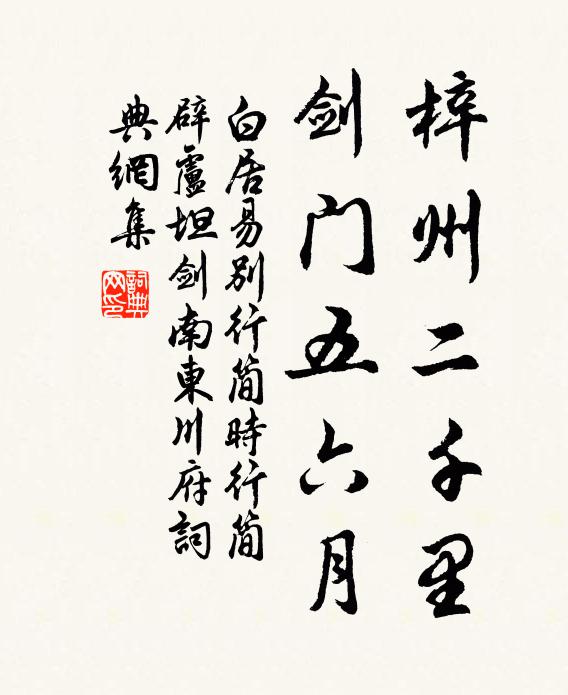 梓州二千里
剑门五六月
白居易别行简時行简
辟盧坦剑南東川府詞
典網集
詞典網印